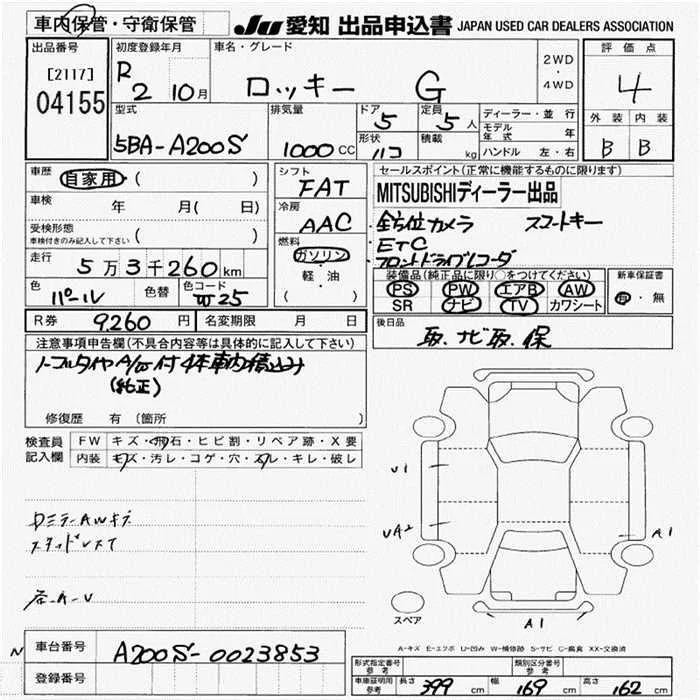 車内保管・守衛保管
JU 愛知 出品申込書 JAPAN USED CAR DEALERS ASSOCIATION
出品番号 初度登録年月 車名・グレード 評価点
[2117] R 2 10月 ロッキー G 2WD・4WD 4
04155
型式 排気量 ドア 5 定員 5人 ディーラー・並行 外装 内装
5BA-A200S 1000CC 形状 ハコ 積載 kg モデル年式 年 B B
ハンドル 左・右
車歴 自家用( ) シフト FAT セールスポイント(正常に機能するものに限ります)
車検 年 月(日) 冷房 AAC MITSUBISHIディーラー出品
受検形態 車検付きのみ記入して下さい ( ) 燃料 ガソリン 全方位カメラ スマートキー
ETC
走行 5万3千260km 軽・油 フロントドライブレコーダ
色 パール 色替 色コード W25 ( ) 装備品(純正品に限り○をつけてください) 新車保証書
PS PW エアB AW 有・無
SR ナビ TV カワシート
R券 9260円 名変期限 月 日 後日品
取、ナビ取、保
注意事項申告欄(不具合内容等は具体的に記入して下さい)
ノーマルタイヤA/W付4本車内積込み
(純正)
修復歴 有(箇所 )
検査員記入欄 FW キズ・飛石・ヒビ割・リペア跡・X要
内装 キズ・汚レ・コゲ・穴・スレ・キレ・破レ
U1
UA2
A1
A1
AWキズ
スペア
A-キズ E-エクボ U-凹み W-補修跡 S-サビ C-腐食 XX-交換済
車台番号 A200S-0023853
登録番号
形式指定番号 参考 類別区分番号 参考
車庫証明用 参考 長さ 399cm 幅 169cm 高さ 162cm